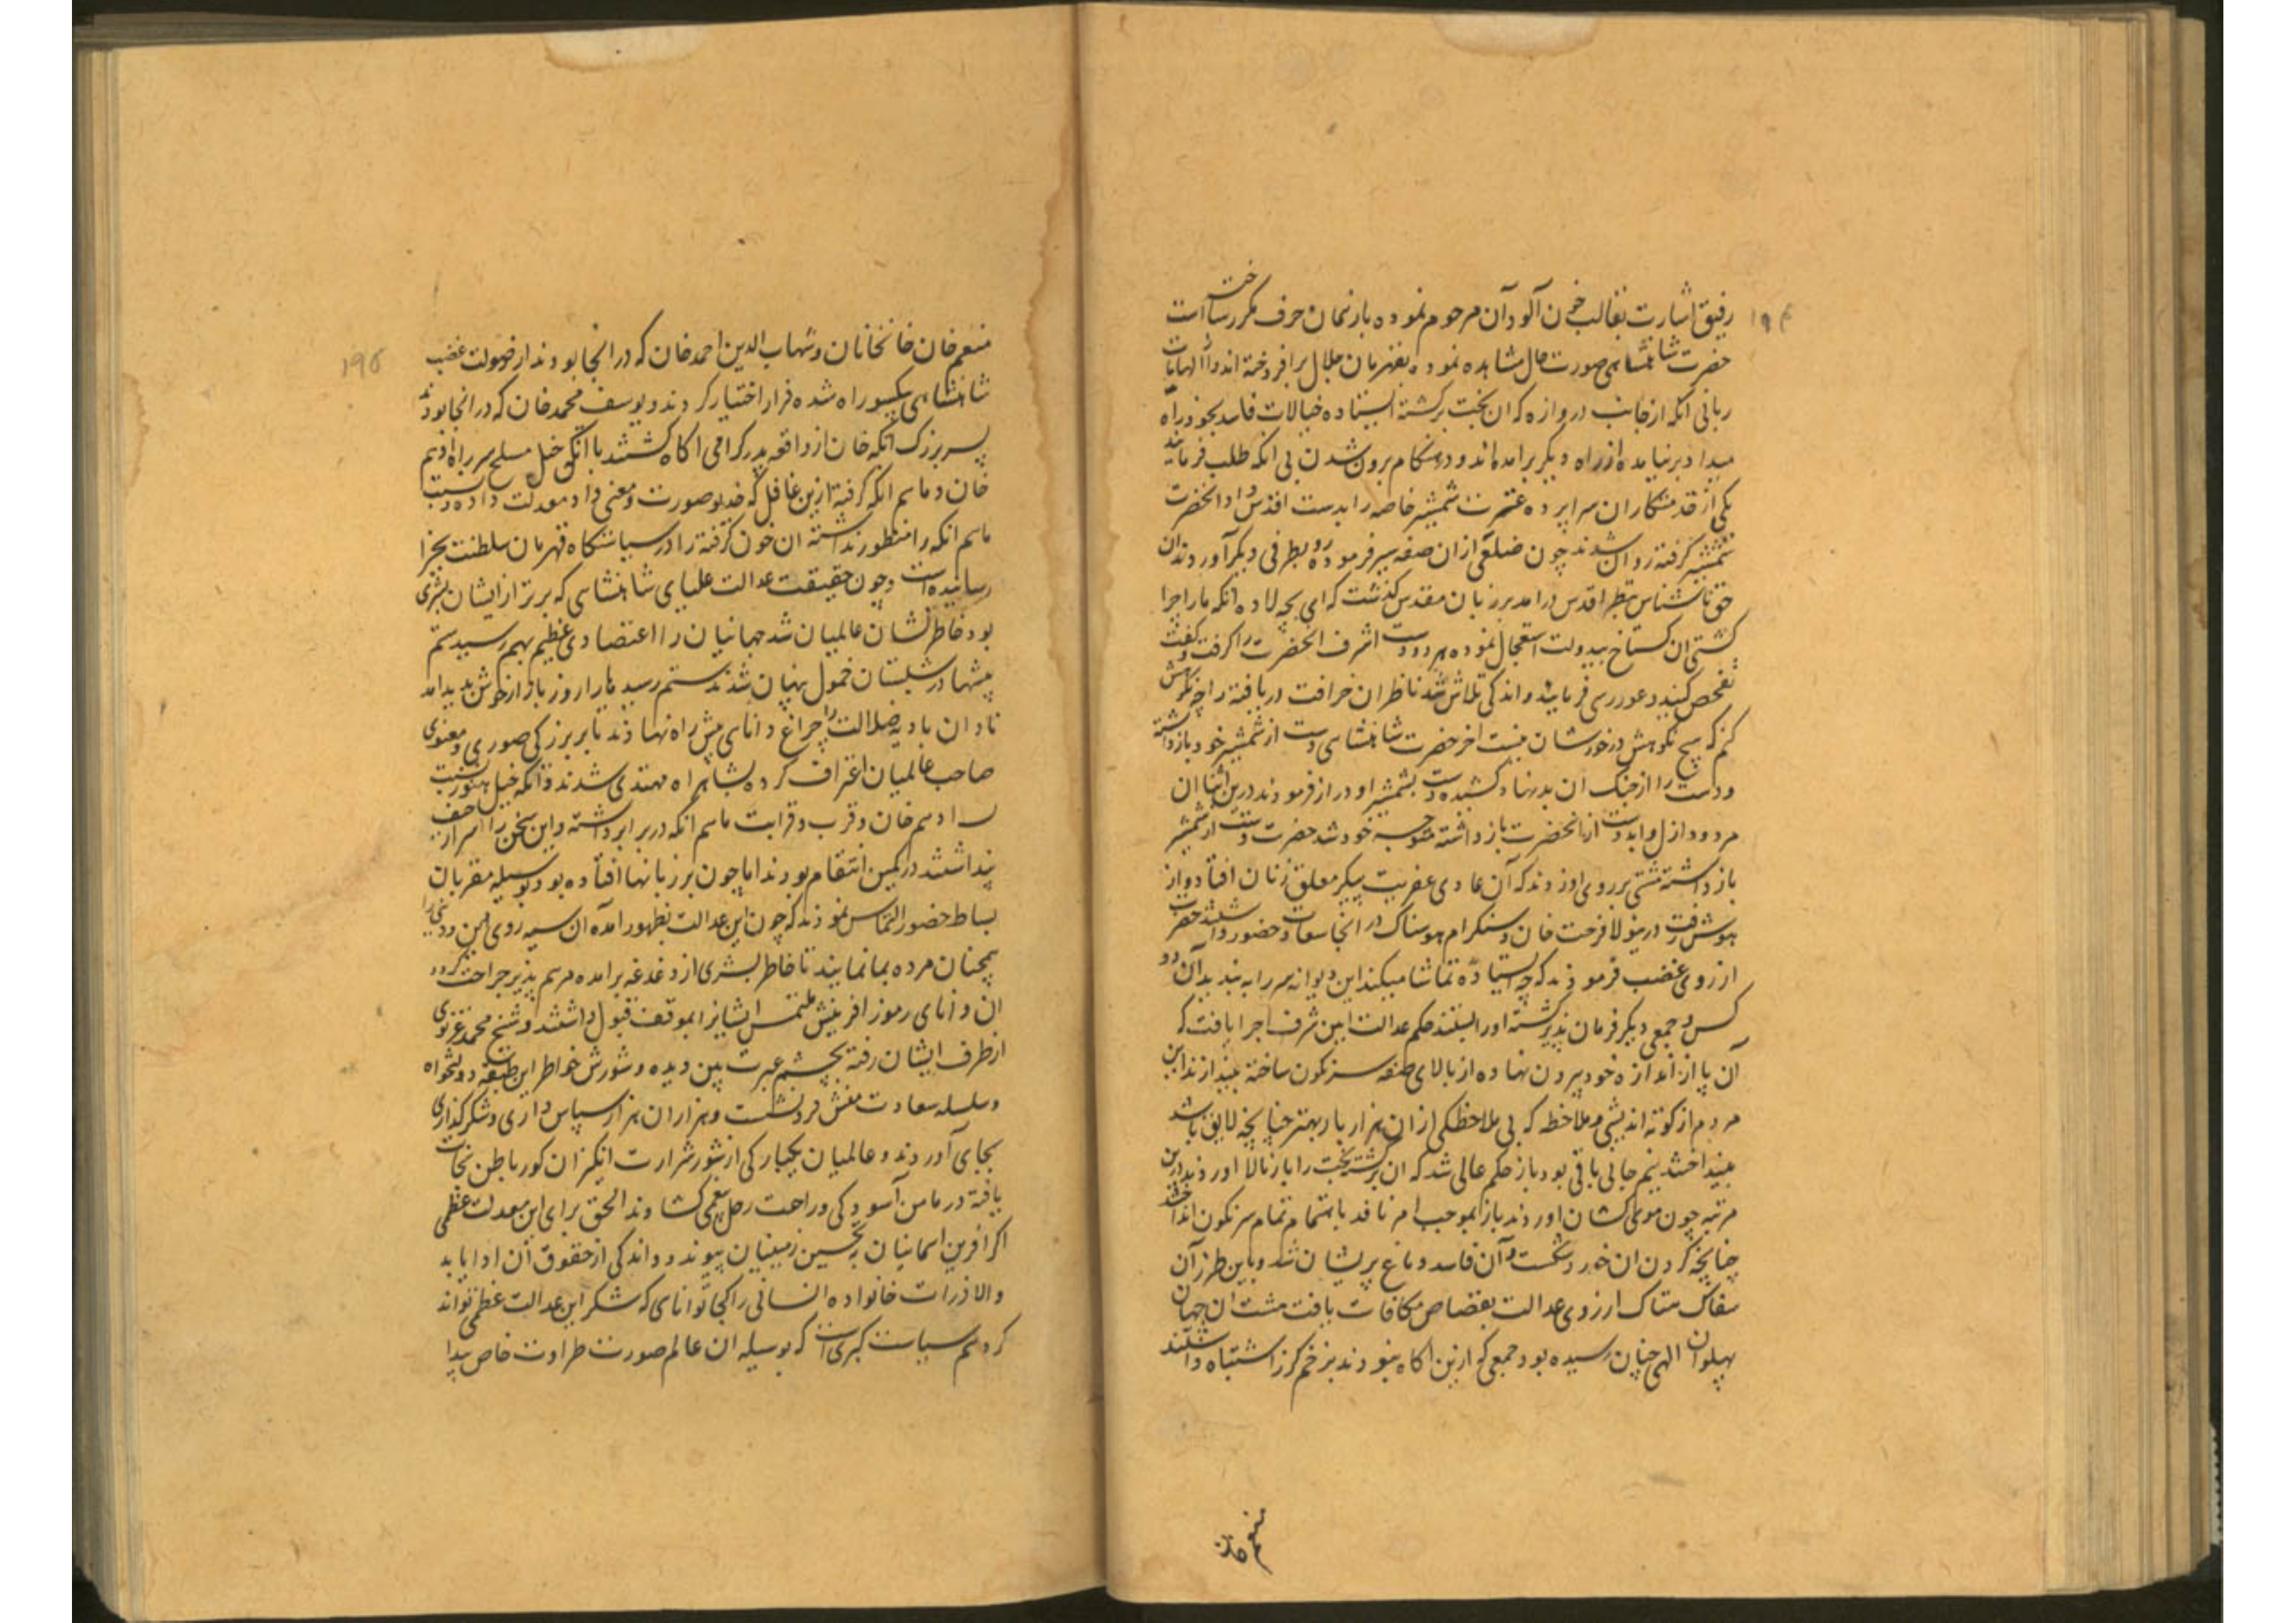 ۱۹۴
رفیق اشارت بقالب خون آلود آن مرحوم نموده باز نمان حرف مکرر ساخته است
حضرت شاهنشاهی صورت حال مشاهده نموده بقهرمان جلال برافروخته اند و از الهامات
ربانی آنکه از جانب دروازه که ان بخت برکشته ایستاده خیالات فاسد بخود راه
میداد برنیامده از راه دیکر برامده اند و در هنکام برون شدن بی انکه طلب فرمایند
یکی از خدمتکاران سراپرده عفت شمشیر خاصه را بدست اقدس داد انحضرت
شمشیر کرفته روان شدند چون ضلعی از ان صفه سیر فرموده رو بطرفی دیکر آوردند ان
حق ناشناس بنظر اقدس درامد بر زبان مقدس کذشت که ای بچه لاده اتکه ما را چرا
کشتی ان کستاخ بیدولت استعجال نموده هر دو دست اشرف انحضرت را کرفت و کفت
تفحص کنید و غوررسی فرمایند و اندکی تلاش شد ناظران خرافت دریافته را چه نکوهش
کنم که هیچ نکوهش درخور شان نیست اخر حضرت شاهنشاهی دست از شمشیر خود بازداشته
و دست را از چنک ان بدنهاد کشیده دست بشمشیر او دراز فرمودند درین اثنا ان
مردود ازل و ابد دست از انحضرت بازداشته متوجه خود شد حضرت دست از شمشیر
بازداشته مشتی بر روی او زدند که آن عادی عفریت پیکر معلق زنان افتاد و از
هوش رفت درینولا فرحت خان و سنکرام هوسناک در انجا سعادت حضور داشتند حضرت
از روی غضب فرمودند که چه ایستاده تماشا میکنید این دیوانه سر را به بندید آن دو
کس و جمعی دیکر فرمان پذیر کشته او را بستند حکم عدالت ایین شرف اجرا یافت که
آن پا از اندازه خود بیرون نهاده از بالای صفه سرنکون ساخته بیندازند این
مردم از کوته اندیشی و ملاحظه که بی ملاحظکی از ان هزار بار بهتر چنانچه لایق باشد
نینداختند نیم جانی باقی بود باز حکم عالی شد که ان برکشته بخت را باز بالا اورند درین
مرتبه چون موی کشان اوردند باز بموجب امر نافذ باهتمام تمام سرنکون انداختند
چنانچه کردن ان خورد شکست و آن فاسد دماغ پریشان شد و باین طرز آن
سفاک هتاک از روی عدالت بقصاص مکافات یافت مشت ان جهان
پهلوان الهی چنان رسیده بود جمعی که ازین اکاه نبودند بزخم کرز اشتباه داشتند
منعم خان
۱۹۵
منعم خان خانخانان و شهاب الدین احمد خان که در انجا بودند از صولت غضب
شاهنشاهی یکسو راه شده فرار اختیار کردند و یوسف محمد خان که در انجا بودند
پسر بزرک اتکه خان از واقعه پدر کرامی اکاه کشتند با اتکه خیل مسلح سر راه ادهم
خان و ماهم انکه کرفته ازین غافل که خدیو صورت و معنی داد معدلت داده نسبت
ماهم انکه را منظور نداشته ان خون کرفته را در سیاستکاه قهرمان سلطنت بجزا
رسانیده است و چون حقیقت عدالت علیای شاهنشاهی که برتر از ایشان بشری
بود خاطرنشان عالمیان شد جهانیان را اعتضادی عظیم بهم رسید ستم
پیشها در شبستان خمول پنهان شدند ستم رسیدها را روز بازار خوش پدید امد
نادان بادیه ضلالت را چراغ دانای پیش راه نهادند تا بر بزرکی صوری و معنوی
صاحب عالمیان اعتراف کرده بشاهراه مهتدی شدند و اتکه خیل هنوز نسبت
ادهم خان و قرب و قرابت ماهم انکه در برابر داشته و این سخن را اسرار خفی
پنداشتند در کمین انتقام بودند اما چون بر زبانها افتاده بود بوسیله مقربان
بساط حضور التماس نمودند که چون این عدالت بظهور امده آن سیه روی را
همچنان مرده بما نمایند تا خاطر بشری از دغدغه برامده مرهم پذیر جراحت کردد
ان دانای رموز افرینش ملتمس ایشانرا بموقف قبول داشتند و شیخ محمد غزنوی
از طرف ایشان رفته بچشم عبرت بین دیده و شورش خواطر این طبقه دولتخواه
و سلسله سعادت منش فرو نشست و هزاران هزار سپاس داری و شکرکذاری
بجای آوردند و عالمیان یکبارکی از شور شرارت انکیزان کور باطن نجات
یافته در مامن آسودکی و راحت رحل نعمی کشادند الحق برای این معدلت عظمی
اکر افرین اسمانیان بتحسین زمینیان پیوندد و اندکی از حقوق آن ادا یابد
والا ذرات خانواده انسانی را کجا توانای که شکر این عدالت عظمی تواند
کرد هم سیاست کبری است که بوسیله ان عالم صورت طراوت خاص پیدا